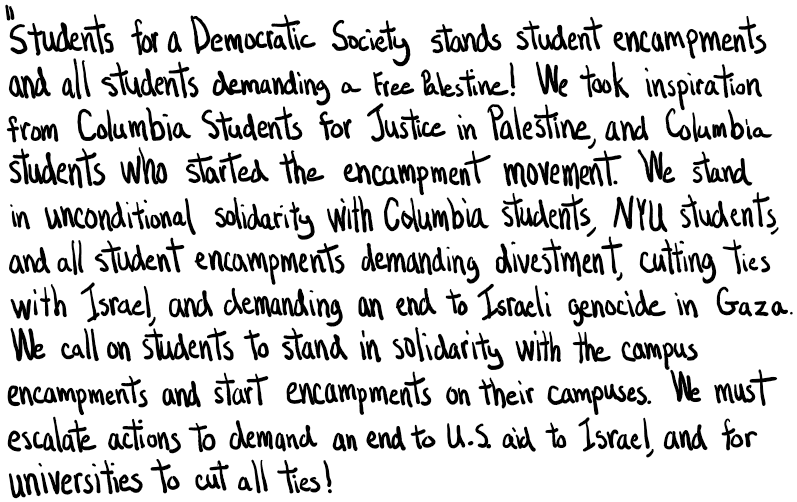 "Students for a Democratic Society stands student encampments
and all students demanding a Free Palestine! We took inspiration
from Columbia Students for Justice in Palestine, and Columbia
students who started the encampment movement. We stand
in unconditional solidarity with Columbia students, NYU students,
and all student encampments demanding divestment, cutting ties
with Israel, and demanding an end to Israeli genocide in Gaza.
We call on students to stand in solidarity with the campus
encampments and start encampments on their campuses. We must
escalate actions to demand an end to U.S. aid to Israel, and for
universities to cut all ties!